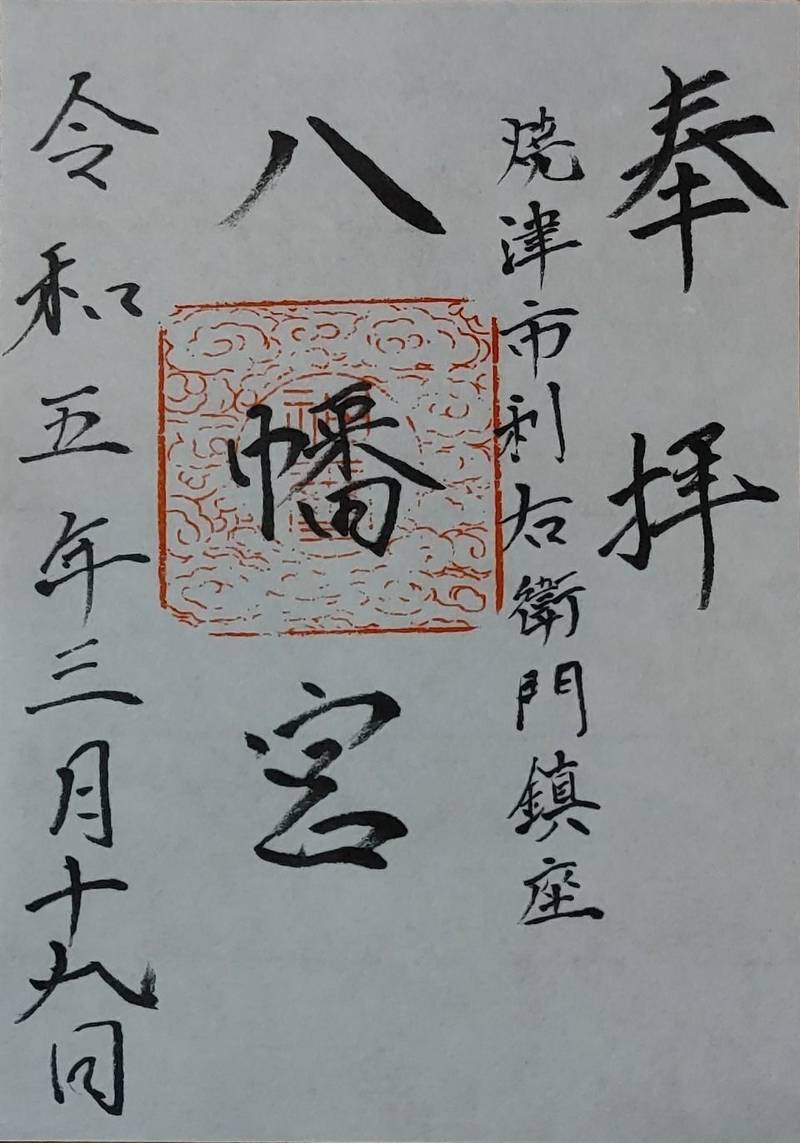 奉拝
焼津市利右衛門鎮座
八幡宮
令和五年三月十九日